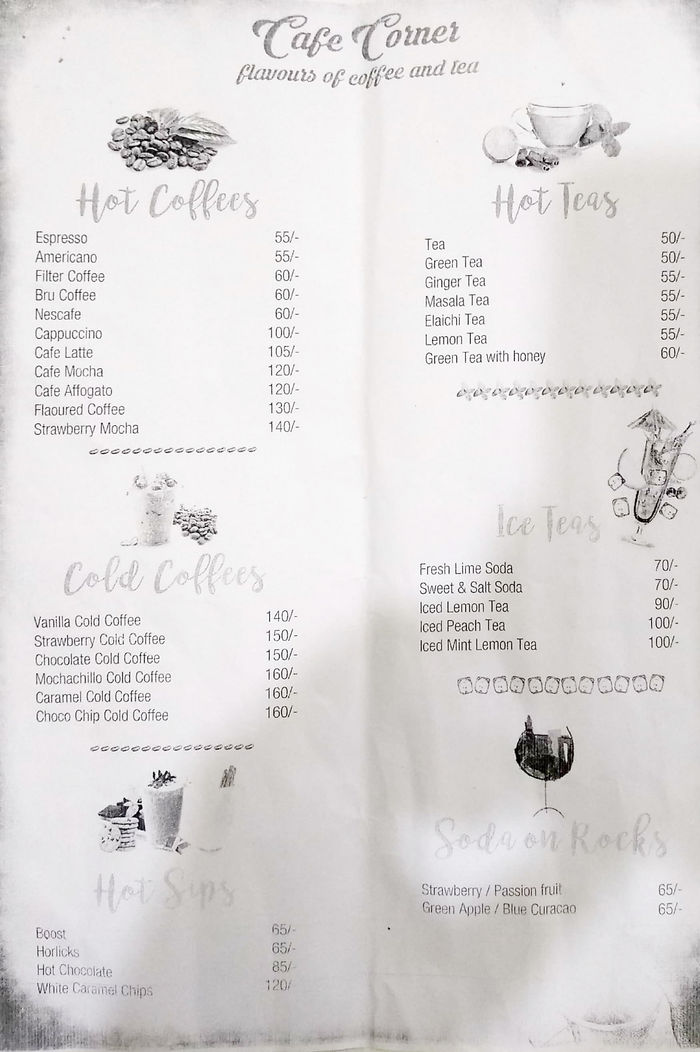 Cafe Corner
flavours of coffee and tea
Hot Coffees
Espresso 55/-
Americano 55/-
Filter Coffee 60/-
Bru Coffee 60/-
Nescafe 60/-
Cappuccino 100/-
Cafe Latte 105/-
Cafe Mocha 120/-
Cafe Affogato 120/-
Flaoured Coffee 130/-
Strawberry Mocha 140/-
Cold Coffees
Vanilla Cold Coffee 140/-
Strawberry Cold Coffee 150/-
Chocolate Cold Coffee 150/-
Mochachillo Cold Coffee 160/-
Caramel Cold Coffee 160/-
Choco Chip Cold Coffee 160/-
Hot Sips
Boost 65/-
Horlicks 65/-
Hot Chocolate 85/-
White Caramel Chips 120/
Hot Teas
Tea 50/-
Green Tea 50/-
Ginger Tea 55/-
Masala Tea 55/-
Elaichi Tea 55/-
Lemon Tea 55/-
Green Tea with honey 60/-
Ice Teas
Fresh Lime Soda 70/-
Sweet & Salt Soda 70/-
Iced Lemon Tea 90/-
Iced Peach Tea 100/-
Iced Mint Lemon Tea 100/-
Soda on Rocks
Strawberry / Passion fruit 65/-
Green Apple / Blue Curacao 65/-